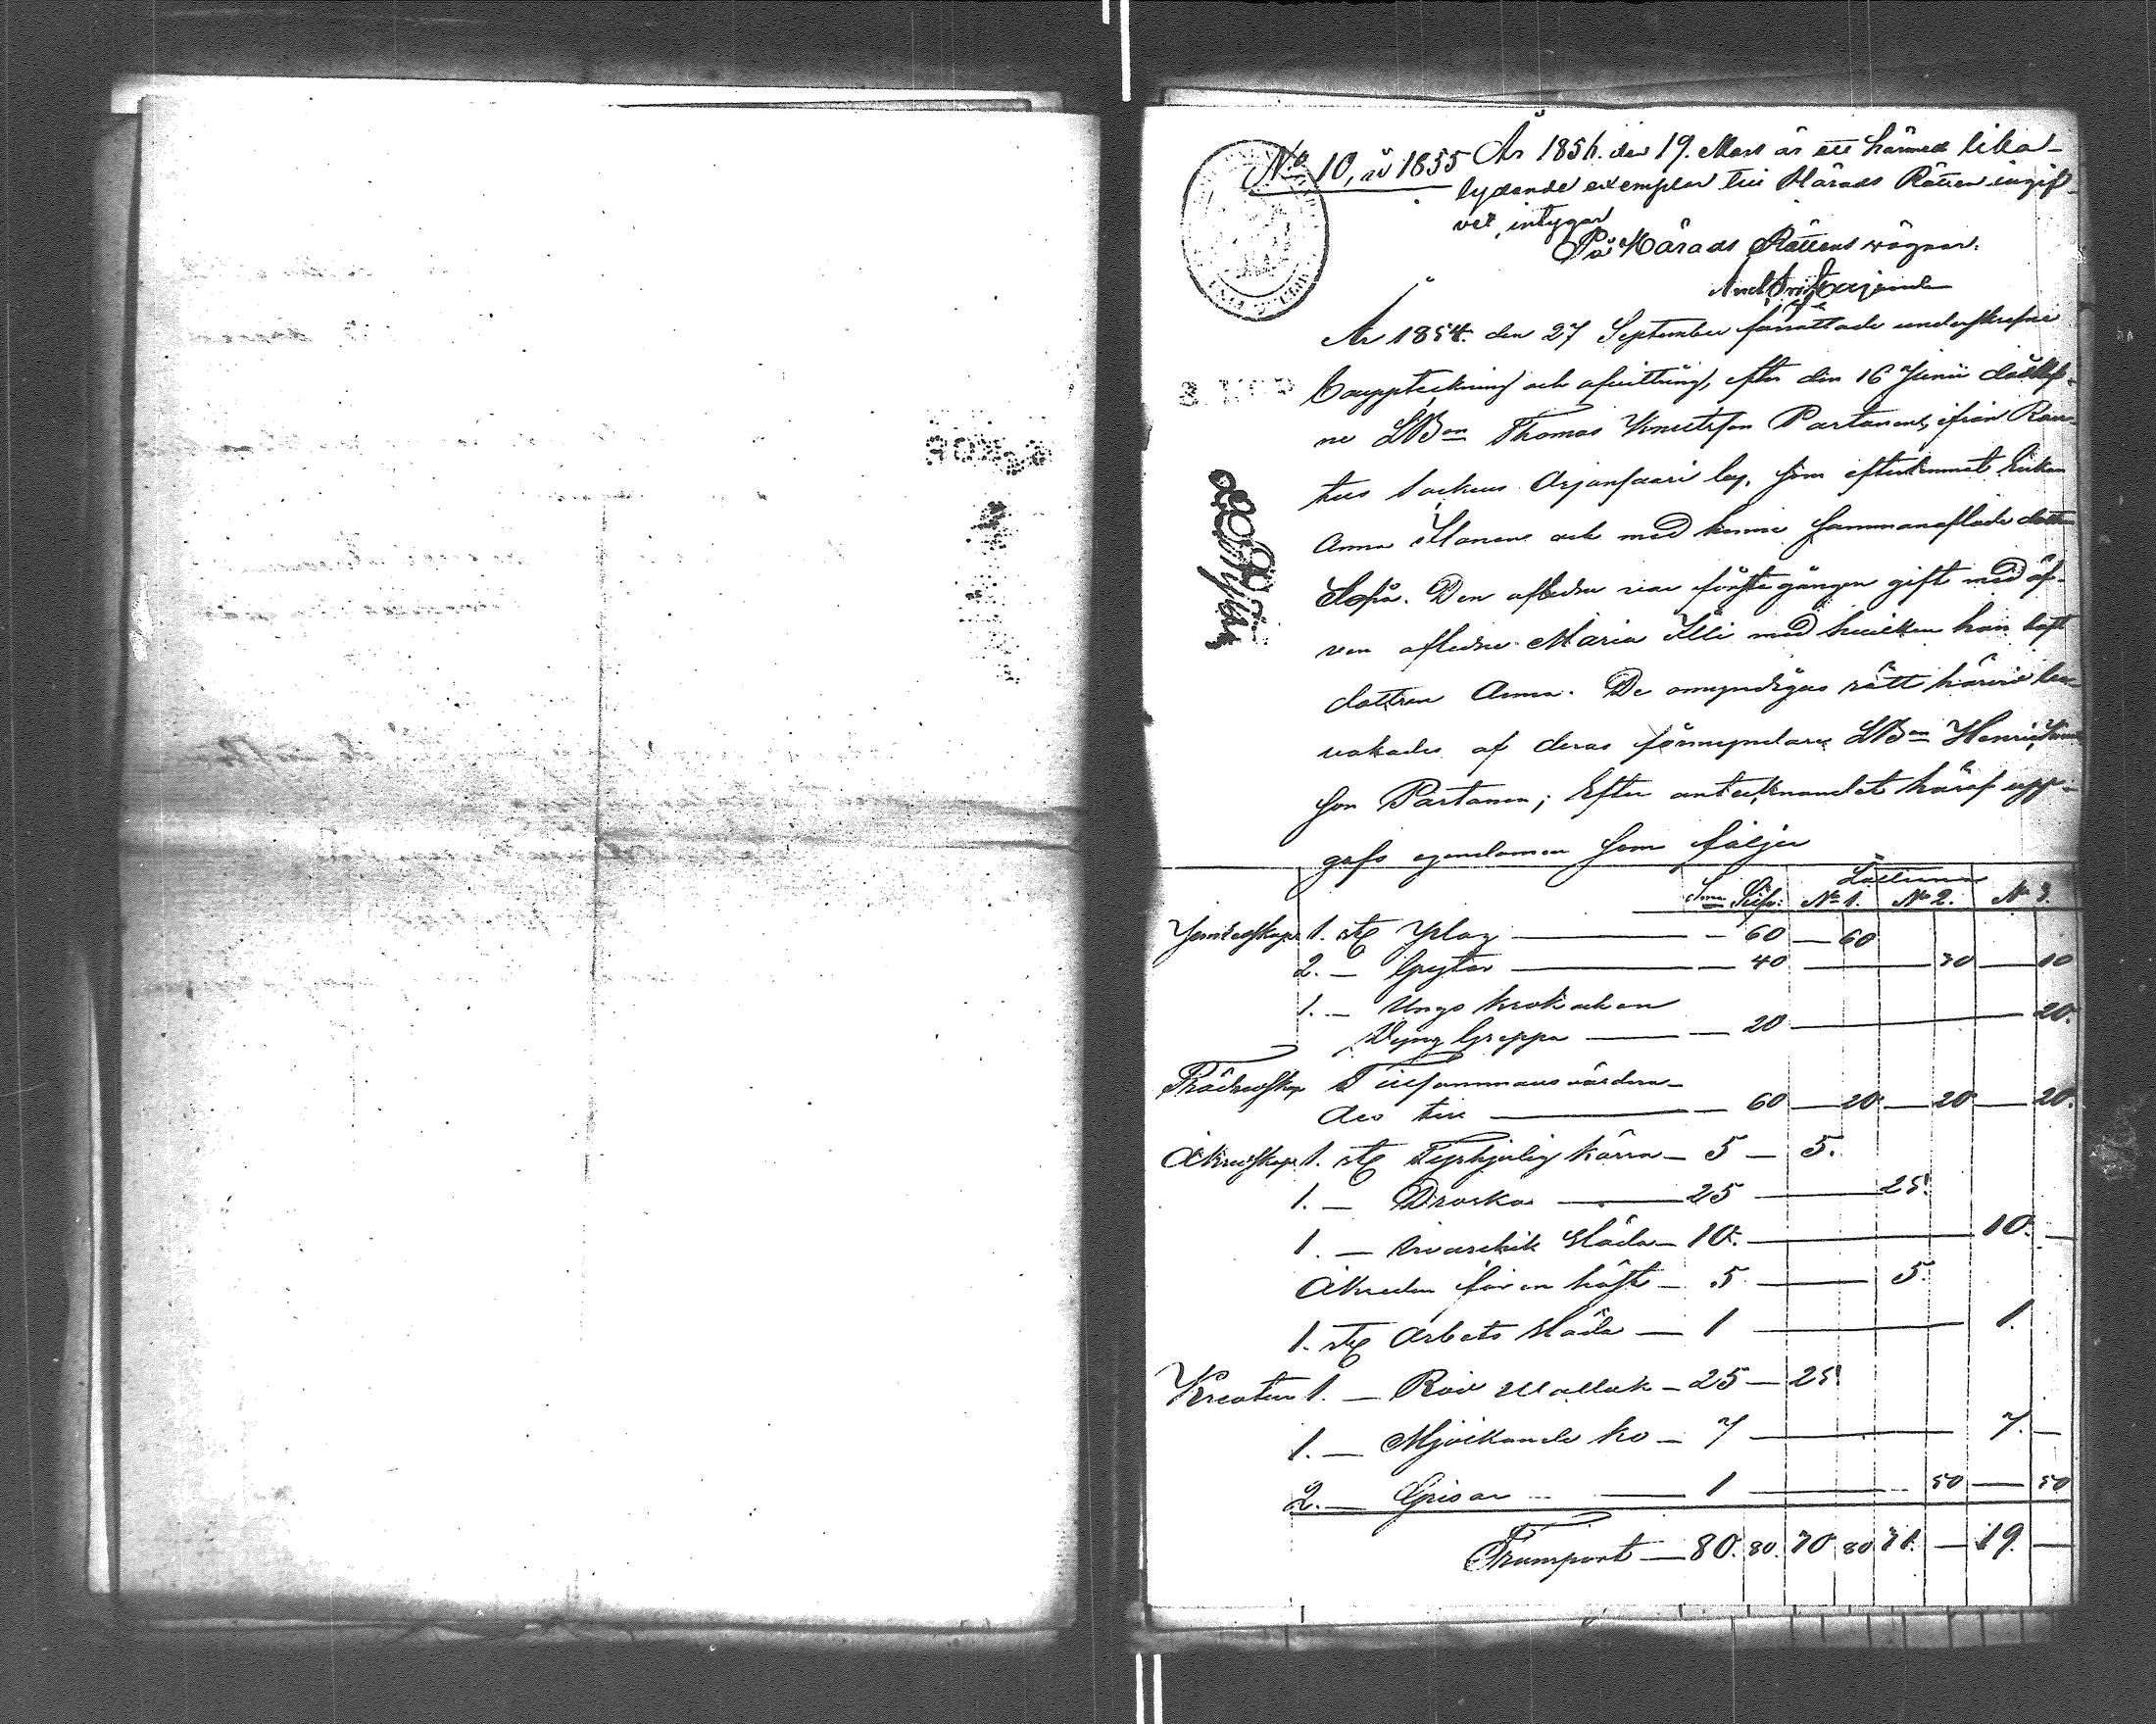 No 10, år 1855 År 1856. den 19. Mars är ett härmed lika-
lydande exemplar till Härads Rätten ingif-
vet, intygar
På Härads Rättens vägnar.
År 1854. den 27 September förrättade underskrefne
bouppteckning och afvittring, efter den 16 Junii dödblef-
ne LBon Thomas Knutsson Partanen, ifrån Rau-
tus Sockens Orjansaari by, som efterlemnat Enkan
Anna och med henne sammanaflade dottren
Sofia. Den aflidne var förste gången gift med äf-
ven aflidne Maria Illi med hvilken han haft
dottren Anna. De omyndigas rätt härvid be-
vakades af deras förmyndare LBon Henric
son Partanen; Efter antecknandet häraf upp-
gafs egendomen som följer
Lotterna
Sma Silfv. No 1. No 2. No 3.
Jernredskap 1. st Yxlag — 60 — 60
2. — Grytor — 40 — 30 — 10
1. — Ungs krok och en
Dyng Greppa — 20 — 20.
Trädredskap Tillsammans värdera-
des till — 60 — 20 — 20 — 20.
Åkredskap 1. st Tvåhjulig kärra — 5 — 5.
1. — Droska — 25 — 25.
1. — släda — 10. — 10. —
Åkreden för en häst — 5 — 5.
1. st Arbets släda — 1 — 1.
Kreatur 1. — Röd Wallak — 25 — 25.
1. — Mjölkande ko — 7 — 7. —
2. — Grisar — 1 — 50 — 50
Transport — 80. 80. 30 80 31. — 19. —